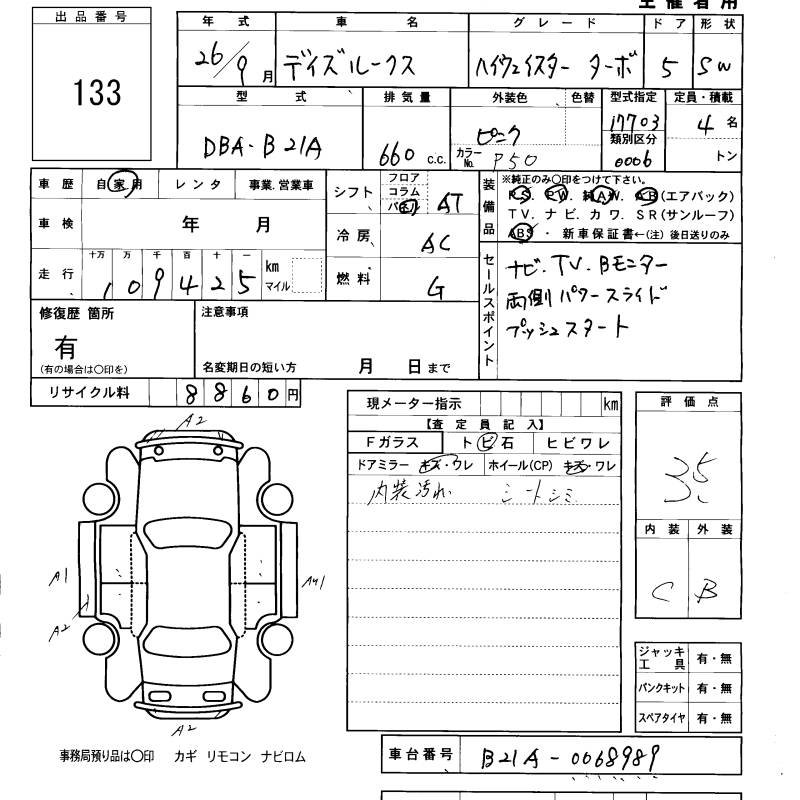 主催者用
出品番号
133
年式 車名 グレード ドア 形状
26/9月 デイズルークス ハイウェイスター ターボ 5 SW
型式 排気量 外装色 色替 型式指定 定員・積載
DBA-B21A 660 c.c. ピンク 17703 4名
カラーNo. P50 類別区分 0006 トン
車歴 自家用 レンタ 事業.営業車
車検 年 月
走行 十万 万 千 百 十 一
109425 km マイル
シフト フロア コラム パネル AT
冷房 AC
燃料 G
装備品 ※純正のみ〇印をつけて下さい。
PS. PW. 純AW. AB(エアバック)
TV. ナビ. カワ. SR(サンルーフ)
ABS ・ 新車保証書←(注) 後日送りのみ
セールスポイント
ナビ.TV.Bモニター
両側パワースライド
プッシュスタート
修復歴 箇所
有
(有の場合は〇印を)
注意事項
名変期日の短い方 月 日まで
リサイクル料 8860円
現メーター指示 km
【査定員記入】
Fガラス トビ石 ヒビワレ
ドアミラー キズ・ワレ ホイール(CP) キズ・ワレ
内装汚れ シートシミ
評価点
3.5
内装 外装
C B
A2
A1
A2
A2
ジャッキ工具 有・無
パンクキット 有・無
スペアタイヤ 有・無
事務局預り品は〇印 カギ リモコン ナビロム
車台番号 B21A-0068989